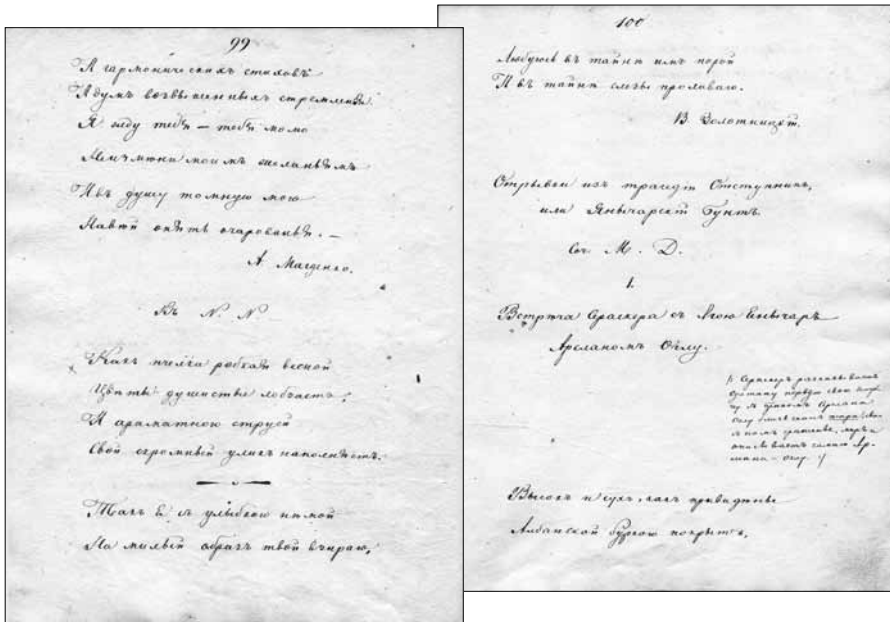 99
И гармоническихъ стиховъ
И думъ возвышенныхъ стремленья.
Я жду тебя — тебя молю
моимъ желаньямъ
И въ душу томную мою
Навѣй опять очарованье. —
А. Магденко.
Къ N. N
Какъ пчелка робкая весной
Цвѣты душистые лобзаетъ,
И араматною струей
Свой огромный улей наполняетъ.
Такъ я съ улыбкою нѣмой
На милый образъ твой взираю,
100
Любуюсь въ тайнѣ имъ порой
И въ тайнѣ слезы проливаю.
В. Золотницкій.
Отрывки изъ трагедіи Отступникъ,
или Янычарскій Бунтъ.
Соч. М. Д.
1.
Встрѣча Сераскера съ Агою Енычаръ
Арсланомъ Оглу.
Сераскеръ
первую свою
Арслана
Высокъ и сухъ, какъ привидѣнье
Албанской буркою покрытъ,